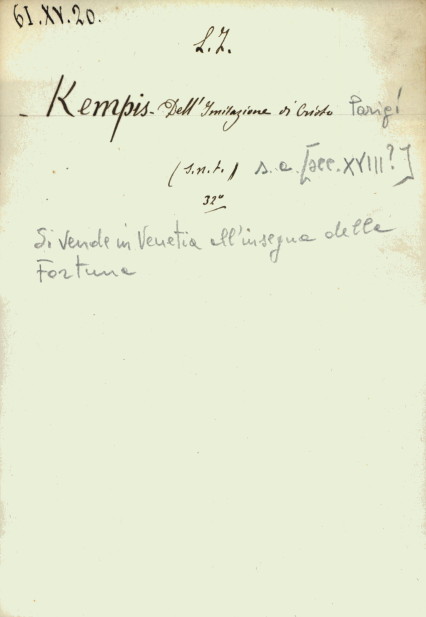 61.XV.20.
L.Z.
- Kempis - Dell'Imitazione di Cristo Parigi
(s.n.t.) s.a. [sec. XVIII?]
32°
Si vende in Venetia all'insegna della
Fortuna